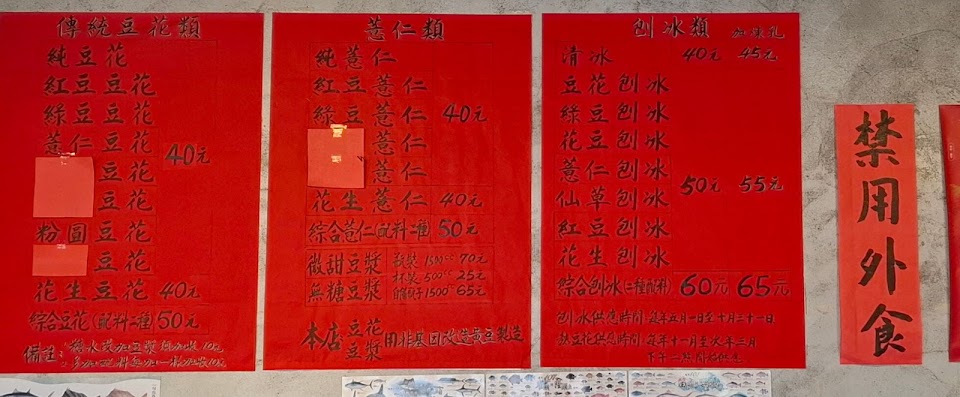 傳統豆花類
純豆花
紅豆豆花
綠豆豆花
薏仁豆花
40元
豆花
豆花
粉圓豆花
豆花
花生豆花 40元
綜合豆花(配料二種)50元
備註:
薏仁類
純薏仁
紅豆薏仁
綠豆薏仁 40元
薏仁
薏仁
花生薏仁 40元
綜合薏仁(配料二種)50元
微甜豆漿
無糖豆漿
瓶裝1500cc70元
杯裝500cc25元
1500cc65元
本店豆花豆漿用非基因改造黃豆製造
刨冰類 加煉乳
清冰 40元 45元
豆花刨冰
綠豆刨冰
花豆刨冰
薏仁刨冰
50元 55元
仙草刨冰
紅豆刨冰
花生刨冰
綜合刨冰(二種配料)60元65元
刨冰供應時間:每年五月一日至十月三十一日
每年十一月至次年三月
禁用外食